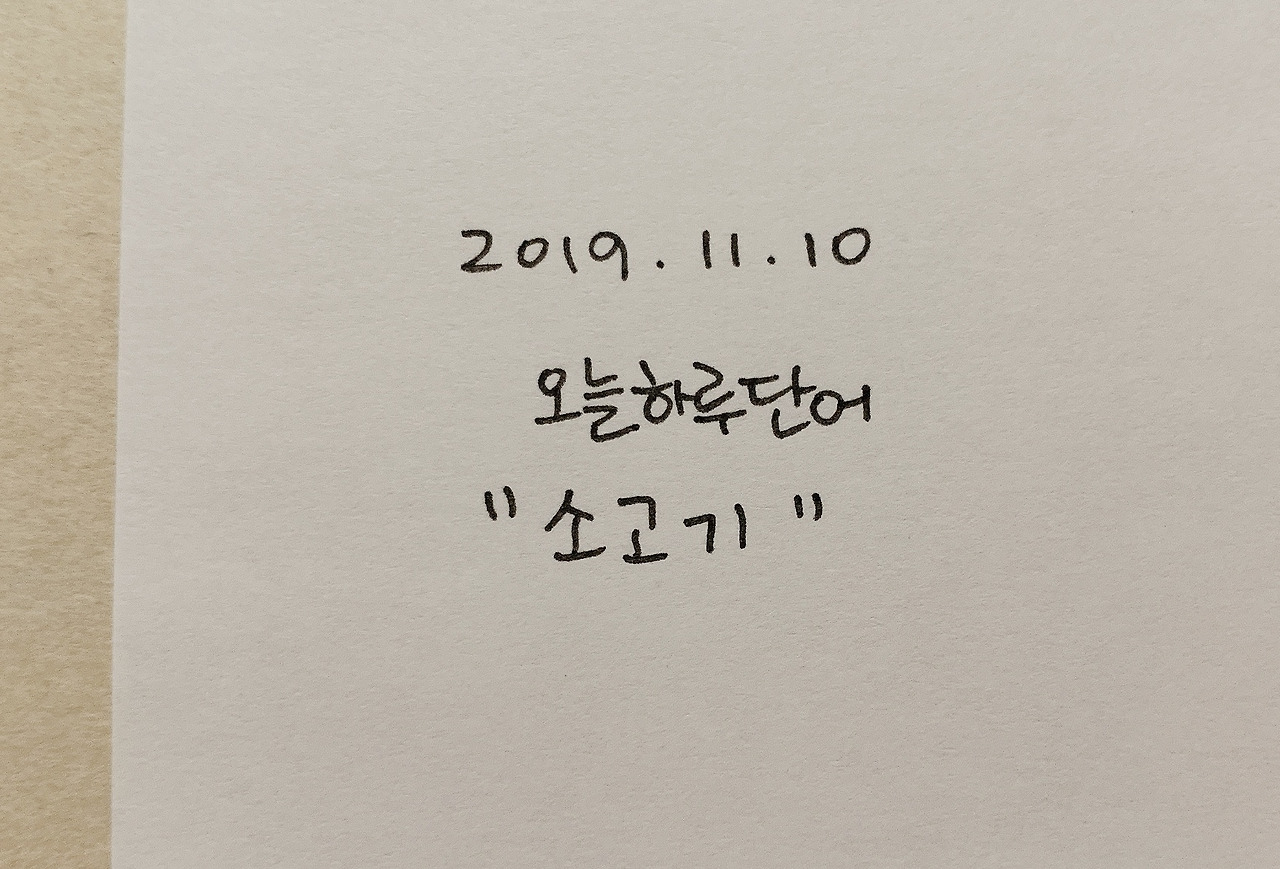 2019.11.10
오늘하루단어
"소고기"